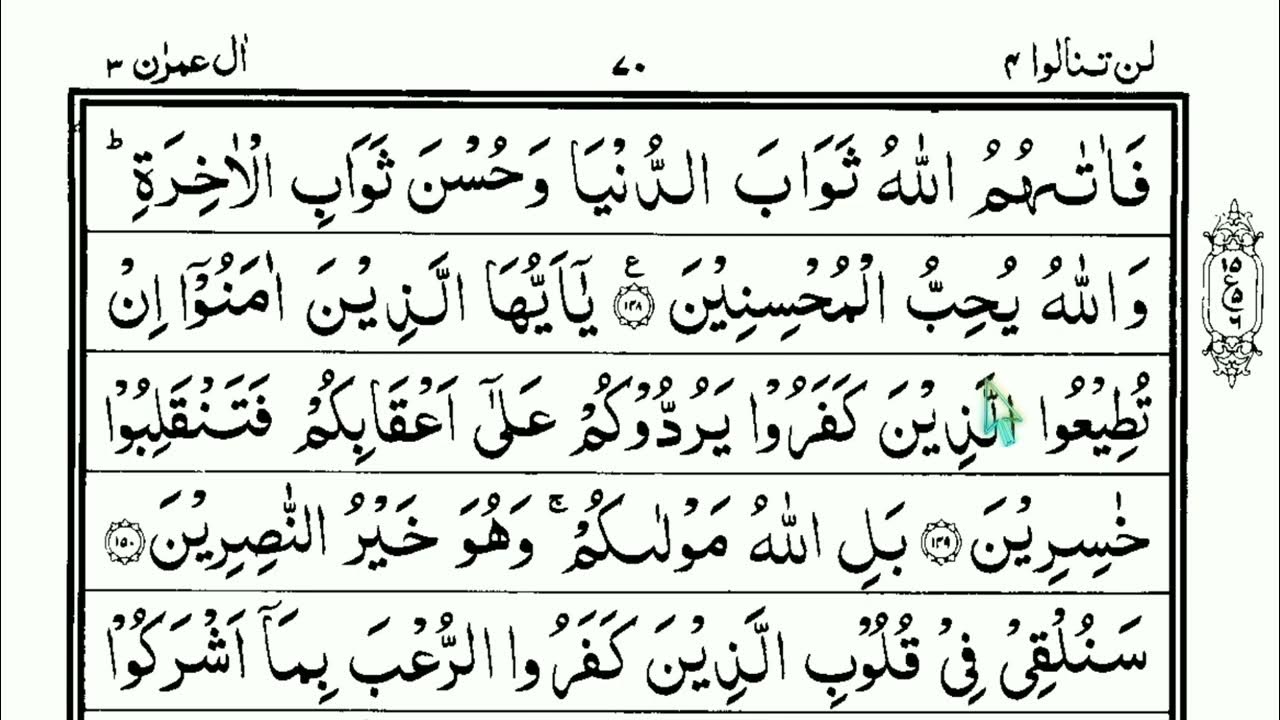 لن تنالوا ۴
۷۰
اٰل عمرٰن ۳
فَاٰتٰىہُمُ اللّٰہُ ثَوَابَ الدُّنْیَا وَحُسْنَ ثَوَابِ الْاٰخِرَۃِ ؕ
وَاللّٰہُ یُحِبُّ الْمُحْسِنِیْنَ ﴿۱۴۸﴾ ع یٰۤاَیُّہَا الَّذِیْنَ اٰمَنُوْۤا اِنْ
۱۵ ع ۵ ۶
تُطِیْعُوا الَّذِیْنَ کَفَرُوْا یَرُدُّوْکُمْ عَلٰۤی اَعْقَابِکُمْ فَتَنْقَلِبُوْا
خٰسِرِیْنَ ﴿۱۴۹﴾ بَلِ اللّٰہُ مَوْلٰىکُمْ ۚ وَہُوَ خَیْرُ النّٰصِرِیْنَ ﴿۱۵۰﴾
سَنُلْقِیْ فِیْ قُلُوْبِ الَّذِیْنَ کَفَرُوا الرُّعْبَ بِمَاۤ اَشْرَکُوْا